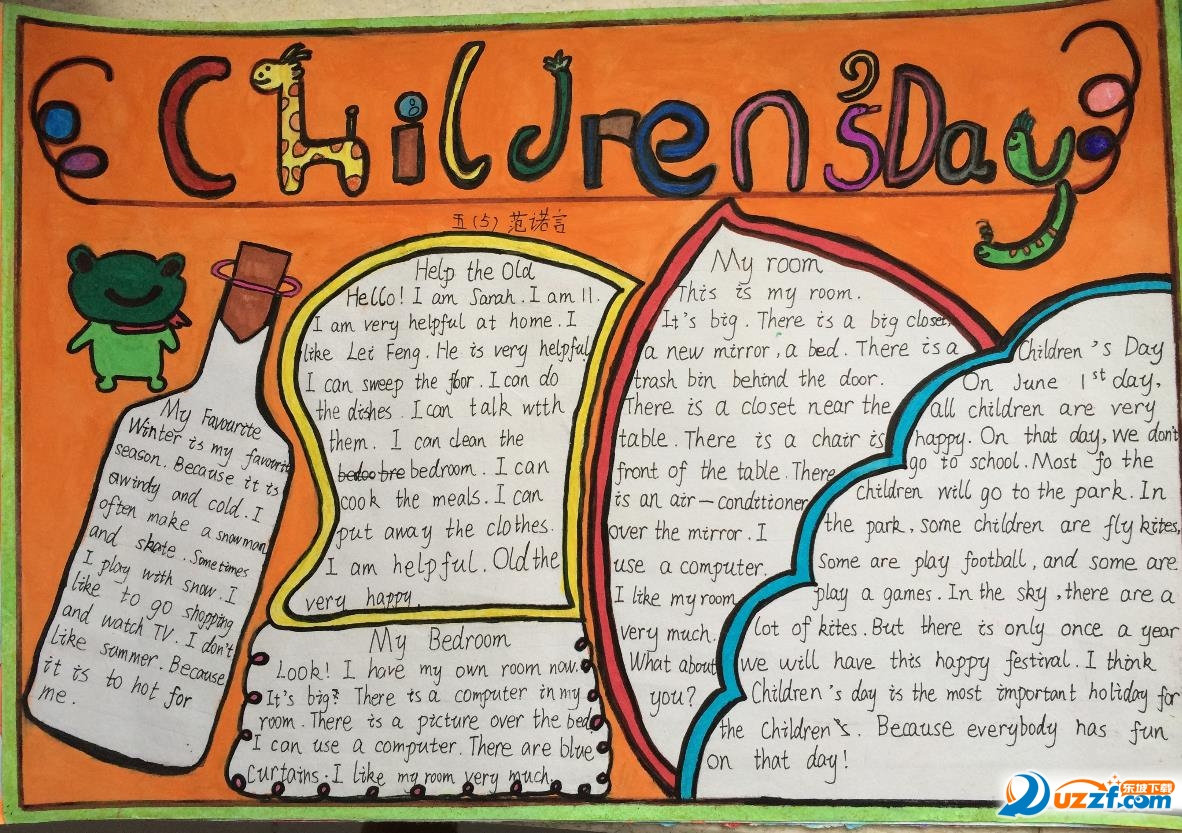 Children's Day
五(5) 范诺言
My Favourite
Winter is my favourite
season. Because it is
awindy and cold. I
often make a snowman
and skate. Sometimes
I play with snow. I
like to go shopping
and watch TV. I don't
like summer. Because
it is to hot for
me.
Help the Old
Hello! I am Sarah. I am 11.
I am very helpful at home. I
like Lei Feng. He is very helpful
I can sweep the floor. I can do
the dishes. I can talk with
them. I can clean the
bedroom. I can
cook the meals. I can
put away the clothes.
I am helpful. Old the
very happy.
My Bedroom
Look! I have my own room now.
It's big? There is a computer in my
room. There is a picture over the bed
I can use a computer. There are blue
curtains. I like my room very much.
My room
This is my room.
It's big. There is a big closet,
a new mirror, a bed. There is a
trash bin behind the door.
There is a closet near the
table. There is a chair is
front of the table. There
is an air-conditioner
over the mirror. I
use a computer.
I like my room
very much.
What about
you?
Children's Day
On June 1st day,
all children are very
happy. On that day, we don't
go to school. Most fo the
children will go to the park. In
the park, some children are fly kites,
Some are play football, and some are
play a games. In the sky, there are a
lot of kites. But there is only once a year
we will have this happy festival. I think
Children's day is the most important holiday for
the Children's. Because everybody has fun
on that day!
东坡下载
uzzf.com